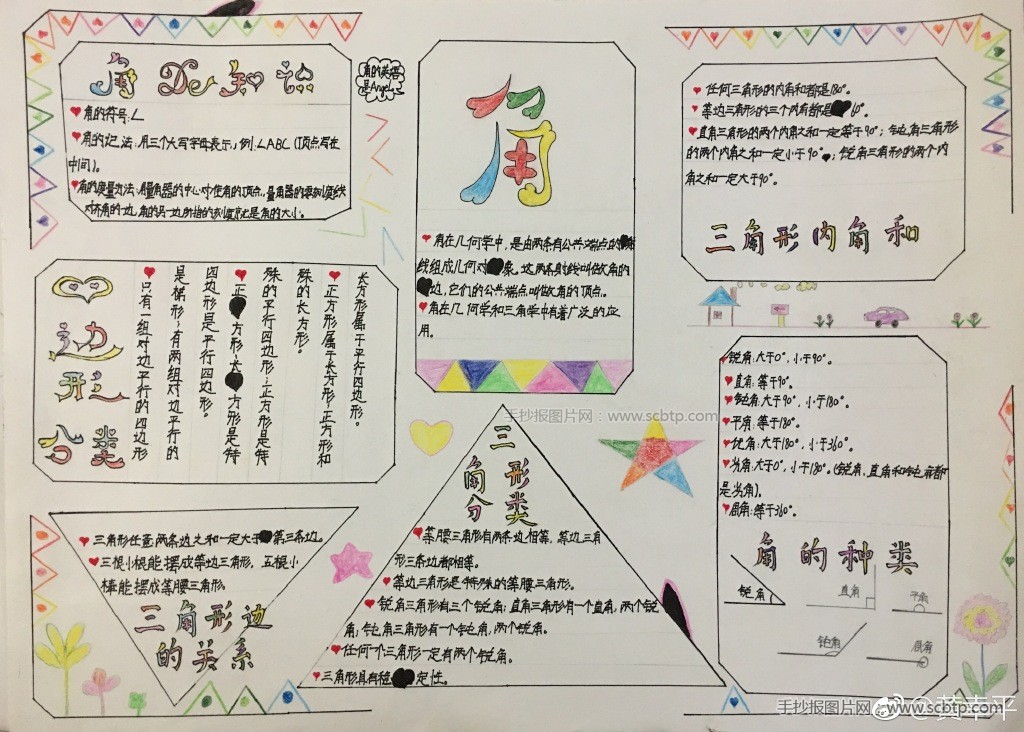 角De知识
角的英语
是Angel。
♥角的符号∠
♥角的记法:用三个大写字母表示,例:∠ABC(顶点写在
中间)。
♥角的度量方法:用量角器的中心对准角的顶点,量角器的零刻度线
对齐角的一边,角的另一边所指的刻度就是角的大小。
角
♥角在几何学中,是由两条有公共端点的
线组成几何对象。这两条射线叫做角的
边,它们的公共端点叫做角的顶点。
♥角在几何学和三角学中有着广泛的应
用。
♥任何三角形的内角和都是180°。
♥等边三角形的三个内角都是60°。
♥直角三角形的两个内角之和一定等于90°;钝角三角形
的两个内角之和一定小于90°;锐角三角形的两个内
角之和一定大于90°。
三角形内角和
四边形
分类
♥只有一组对边平行的四边形
是梯形;有两组对边平行的
四边形是平行四边形。
♥正方形、长方形是特
殊的平行四边形;正方形是特
殊的长方形。
♥正方形属于长方形,正方形和
长方形属于平行四边形。
♥锐角:大于0°,小于90°。
♥直角:等于90°。
♥钝角:大于90°,小于180°。
♥平角:等于180°。
♥优角:大于180°,小于360°。
♥劣角:大于0°,小于180°。(锐角、直角和钝角都
是劣角)。
♥周角:等于360°。
角的种类
锐角
直角
平角
钝角
周角
♥三角形任意两条边之和一定大于第三条边。
♥三根小棒能摆成等边三角形,五根小
棒能摆成等腰三角形。
三角形边
的关系
三
角形
分类
♥等腰三角形有两条边相等,等边三角
形三条边都相等。
♥等边三角形是特殊的等腰三角形。
♥锐角三角形有三个锐角;直角三角形有一个直角,两个锐
角;钝角三角形有一个钝角,两个锐角。
♥任何一个三角形一定有两个锐角。
♥三角形具有稳定性。
手抄报图片网:www.scbtp.com
手抄报图片网:www.scbtp.com
@黄幸平